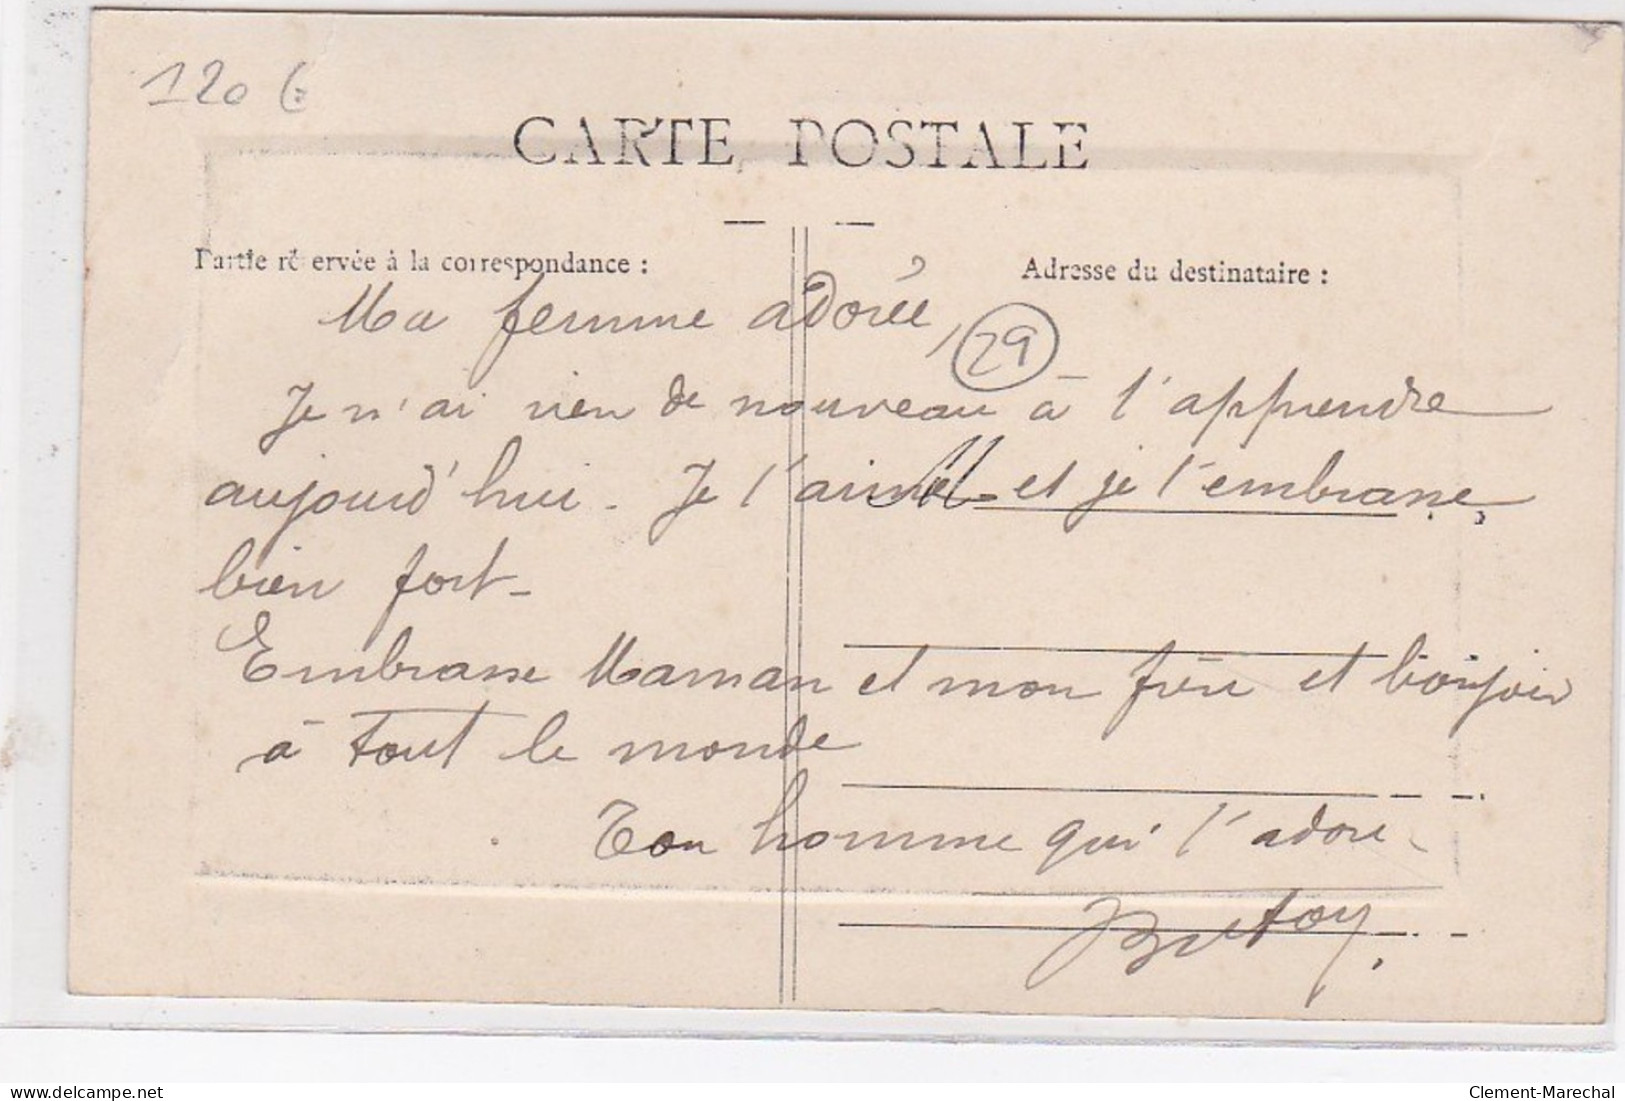 120 €
CARTE POSTALE
Partie réservée à la correspondance :
Adresse du destinataire :
Ma femme adorée,
29
Je n'ai rien de nouveau à t'apprendre
aujourd'hui. Je t'aime et je t'embrasse
bien fort -
Embrasse Maman et mon frère et bonjour
à tout le monde
Ton homme qui t'adore
delcampe.net
Clement-Marechal